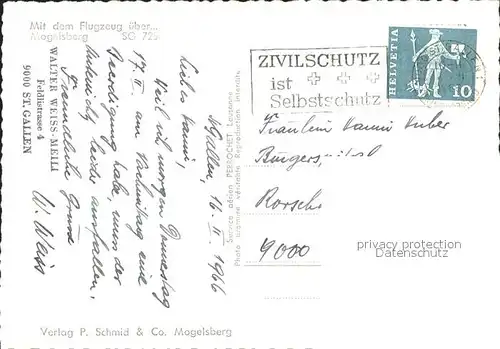 Mit dem Flugzeug über...
Mogelsberg SG 725
WALTER WEISS-MEILI
Feldlistrasse 4
9000 ST. GALLEN
St. Gallen, 16. II. 1966
Liebes Hanni,
Weil ich morgen Donnerstag
17. II. am Vormittag eine
Beerdigung habe, muss der
Unterricht leider ausfallen.
Freundliche Grüsse
W. Weiss
Photo aérienne véritable Reproduction interdite
Service aérien PERROCHET Lausanne
ZIVILSCHUTZ
ist
Selbstschutz
HELVETIA
10
Fräulein Hanni Huber
Rorschach
9000
privacy protection
Datenschutz
Verlag P. Schmid & Co. Mogelsberg